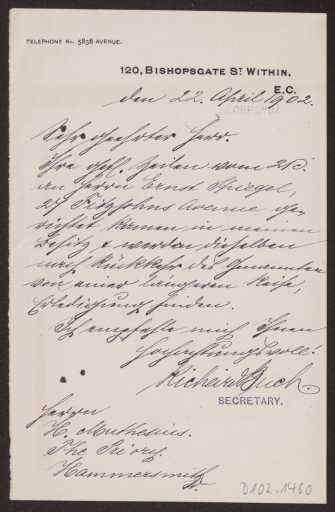 TELEPHONE No. 5838 AVENUE.
120, BISHOPSGATE ST. WITHIN,
E.C.
den 22. April 1902.
Sehr geehrter Herr.
Ihre gefl. Zeilen vom 21.
an Herrn Ernst Spiegel,
27 Fitzjohns Avenue ge-
richtet kamen in meinen
Besitz & werden dieselben
nach Rückkehr des Genannten
von einer längeren Reise,
Erledigung finden.
Ich empfehle mich Ihnen
hochachtungsvoll!
Richard
SECRETARY.
Herrn
H. Muthesius.
The Priory.
Hammersmith
D102-1460